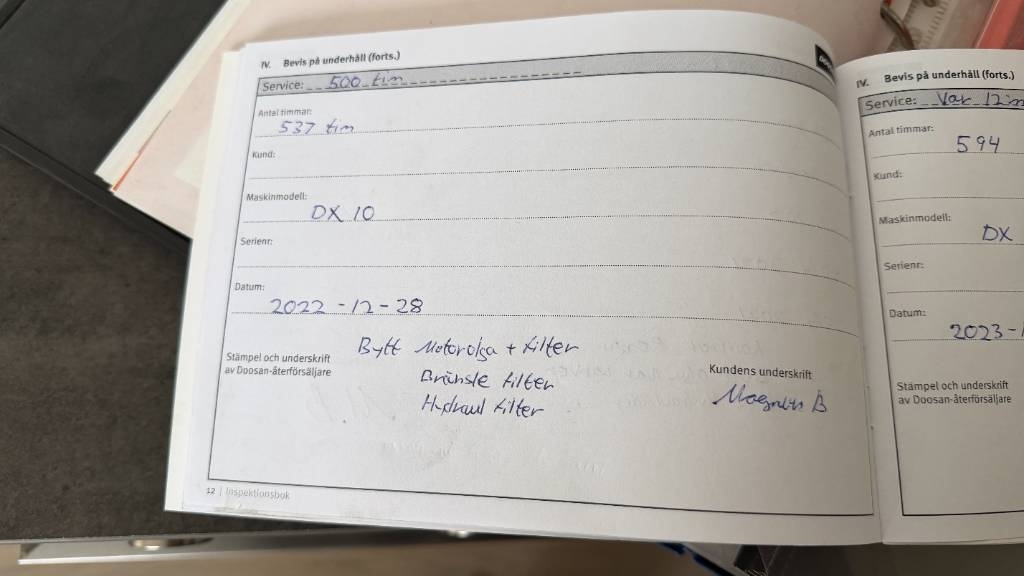 IV. Bevis på underhåll (forts.)
Service: 500 tim
Antal timmar:
537 tim
Kund:
Maskinmodell:
DX 10
Serienr:
Datum:
2022-12-28
Bytt Motorolja + filter
Bränsle filter
Hydraul filter
Stämpel och underskrift
av Doosan-återförsäljare
Kundens underskrift
Magnus B
12 | Inspektionsbok
IV. Bevis på underhåll (forts.)
Service: Var 12:
Antal timmar:
594
Kund:
Maskinmodell:
DX
Serienr:
Datum:
2023-1
Stämpel och underskrift
av Doosan-återförsäljare